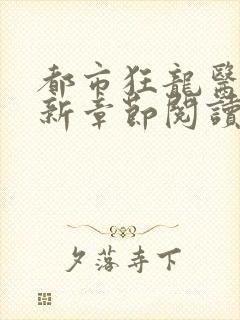 都市狂龍醫
新章節閱讀
夕落寺下